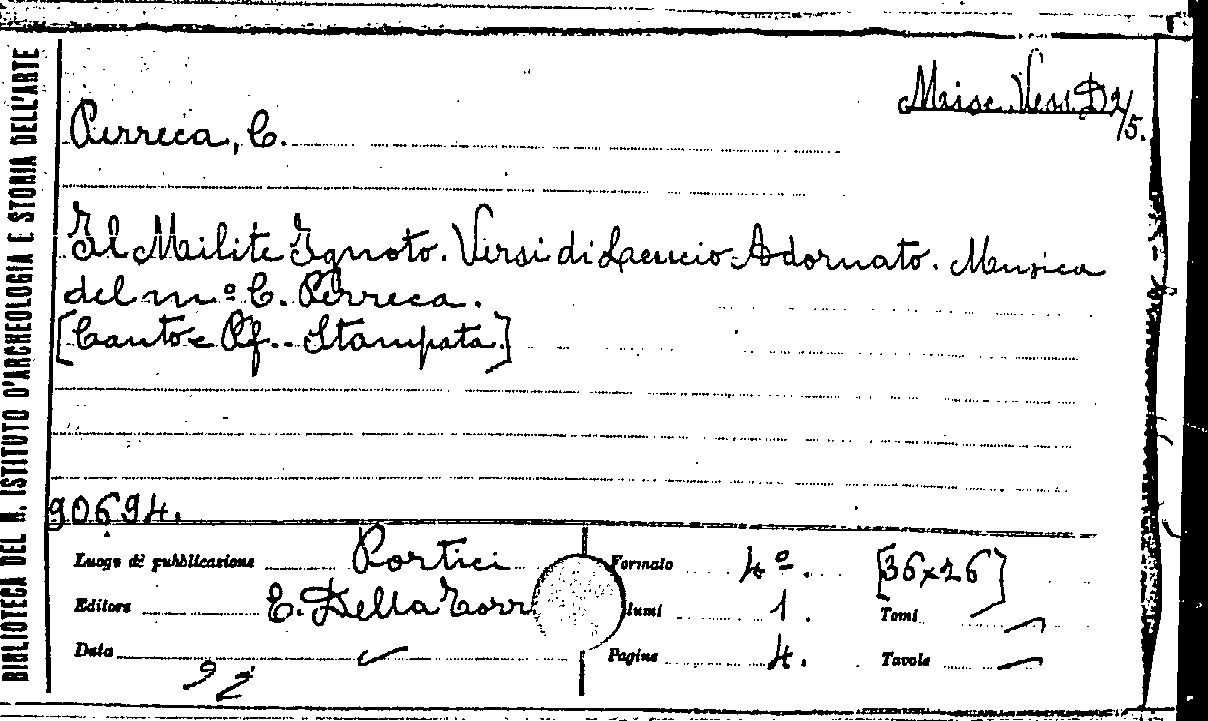 BIBLIOTECA DEL R. ISTITUTO D'ARCHEOLOGIA E STORIA DELL'ARTE
Misc. Vess. D2/5.
Perreca, C.
Il Milite Ignoto. Versi di Laccio Adornato. Musica
del mº C. Perreca.
[Canto e Pf. - Stampata.]
90694.
Luogo di pubblicazione Portici
Formato 4º. [36x26]
Editore E. Della Torr
lumi 1. Tomi —
Data —
Pagine 4. Tavole —
92